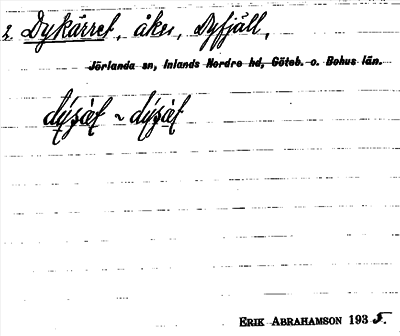 2. Dykärret, åker, Dyfjäll,
Jörlanda sn, Inlands Nordre hd, Göteb. o. Bohus län.
ERIK ABRAHAMSON 1935.